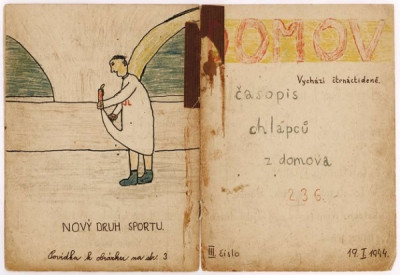 NOVÝ DRUH SPORTU.
Povídka k obrázku na str. 3
DOMOV
Vychází čtrnáctideně.
časopis
chlapců
z domova
236.
III. číslo
19. I 1944.